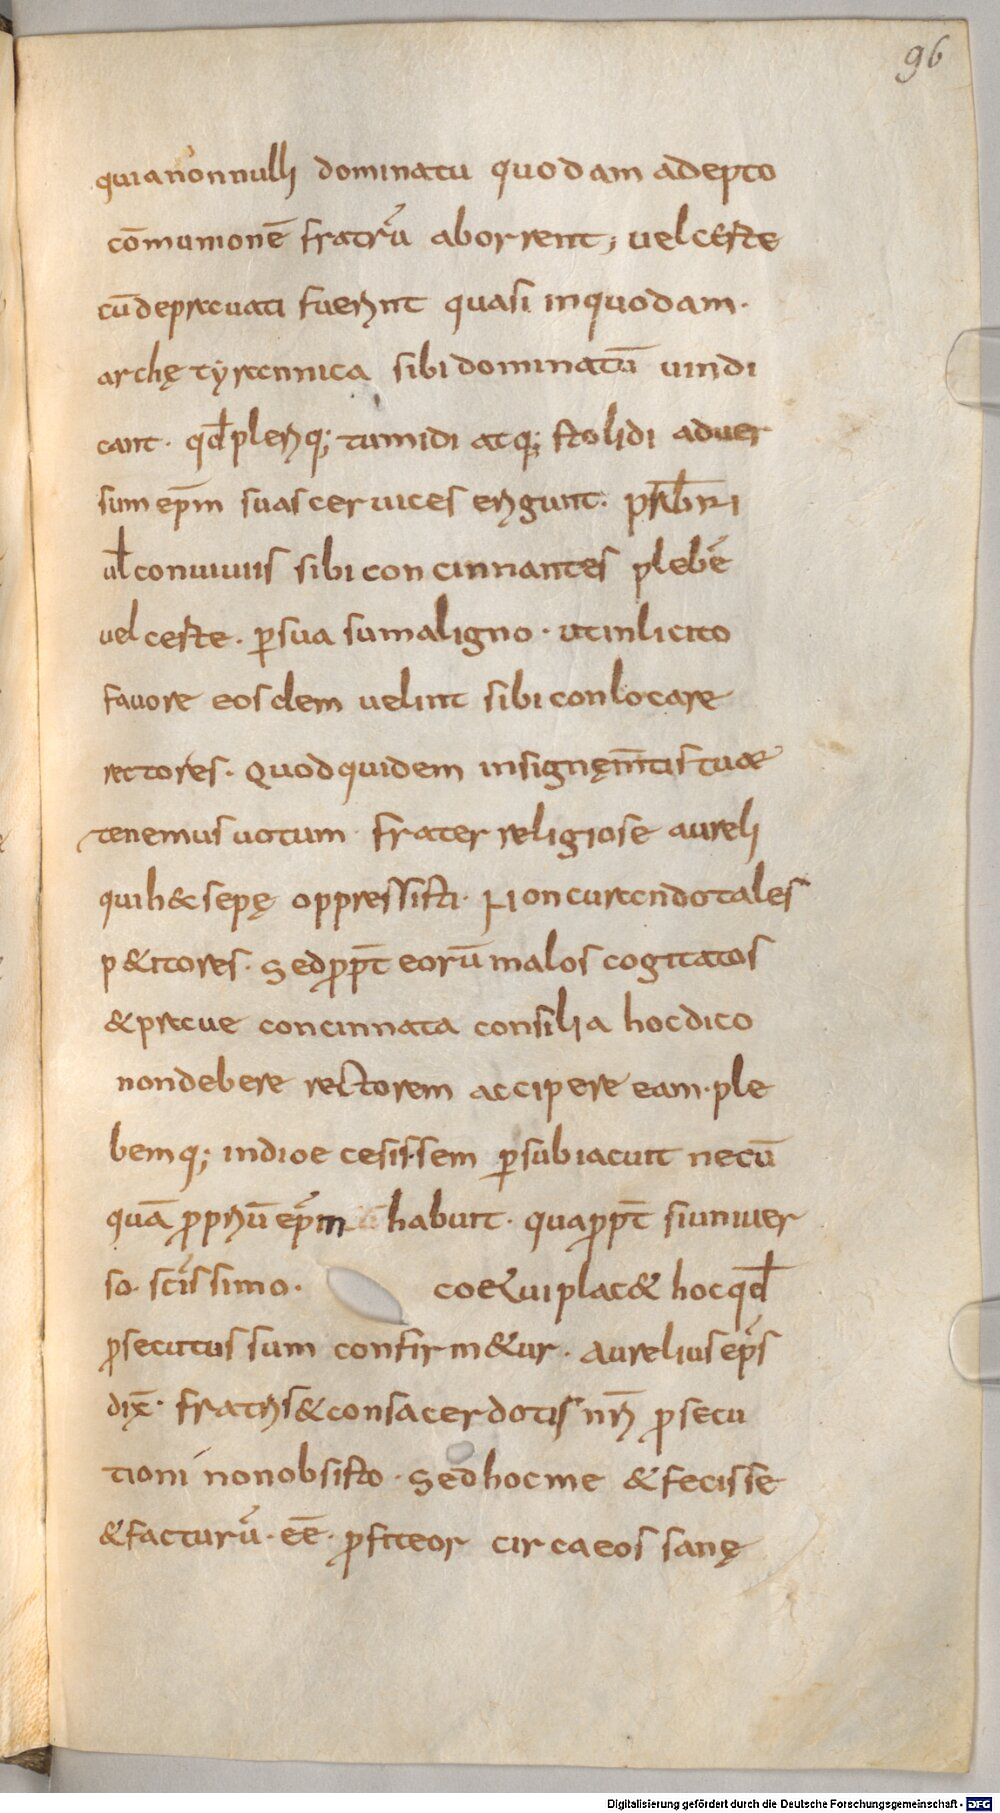 96
quia nonnulli dominatu quodam adepto
cōmunionē fratrū aborrent; vel certe
cū depravati fuerint quasi in quodam.
archę tyrannica sibi dominatū vindi
cant. qđ pleriq; tumidi atq; stolidi adver
sum epm̄ suas cervices erigunt. prb̄ri
ul̄ conviviis sibi concinnantes plebē
vel certe. p̱suasu maligno. ut inlicito
favore eosdem velint sibi conlocare
rectores. Quod quidem insignę m̄tis tuæ
tenemus votum frater religiose aureli
qui h&c sepę oppressisti. Non curando tales
p&itores. Sed ꝓpt̄ eorū malos cogitatos
& prave concinnata consilia hoc dico
non debere rectorem accipere eam. ple
bemq; in dioecesis.sem ꝑ subiacuit necū
quā ꝓpriū epm̄ habuit. quaꝓpt̄ si univer
so. scīssimo. coetui plac& hoc qđ
ꝓsecutus sum confirm&ur. Aurelius ep̄s
dix̄. fratris & consacerdotis nr̄i ꝓsecu
tioni non obsisto. Sed hoc me & fecisse
& facturū. eē. ꝓfiteor circa eos sanę
Digitalisierung gefördert durch die Deutsche Forschungsgemeinschaft - DFG